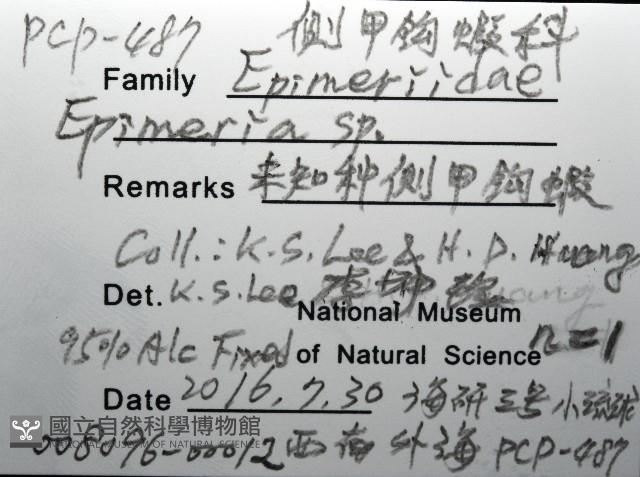 PCP-487 側甲鉤蝦科
Family Epimeriidae
Epimeria sp.
Remarks 未知种側甲鉤蝦
Coll.: K.S. Lee & H.D. Huang
Det. K.S. Lee
National Museum
95% Alc Fixed of Natural Science n=1
Date 2016.7.30 海研三号小琉球
國立自然科學博物館
NATIONAL MUSEUM OF NATURAL SCIENCE
西南外海 PCP-487